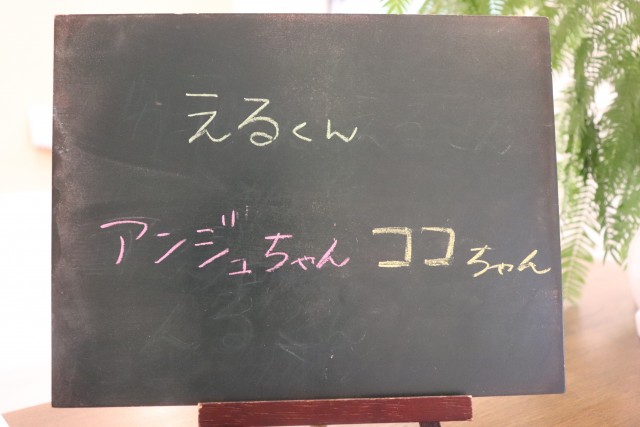 えるくん
アンジュちゃん ココちゃん